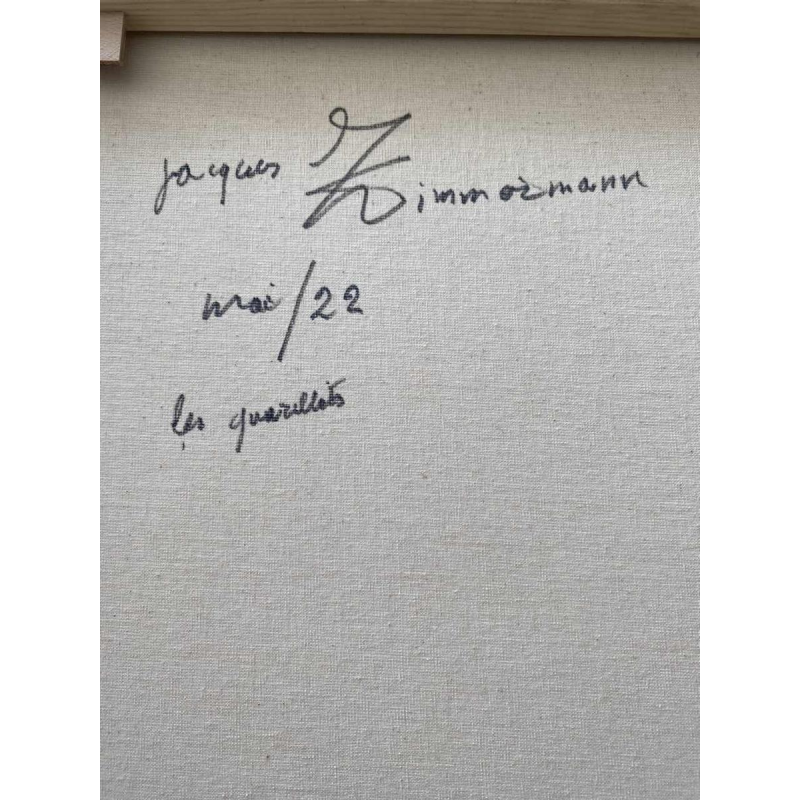 Jacques Zimmermann
mai/22
les